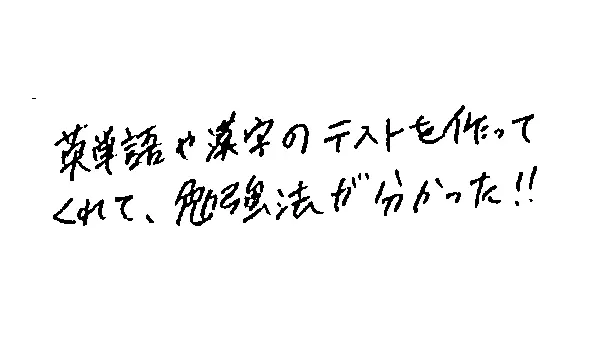 英単語や漢字のテストを作って
くれて、勉強法が分かった!!